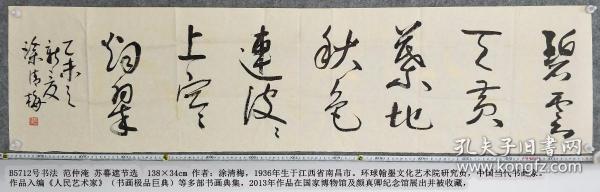 碧雲
天黄
葉地
秋色
連波〻
上寒
烟翠
乙未之
新夏
涂清梅
B5712号书法 范仲淹 苏暮遮节选 138×34cm 作者:涂清梅,1936年生于江西省南昌市。环球翰墨文化艺术院研究员,中国当代书画家。
作品入编《人民艺术家》(书画极品巨典)等多部书画典集,2013年作品在国家博物馆及颜真卿纪念馆展出并被收藏,